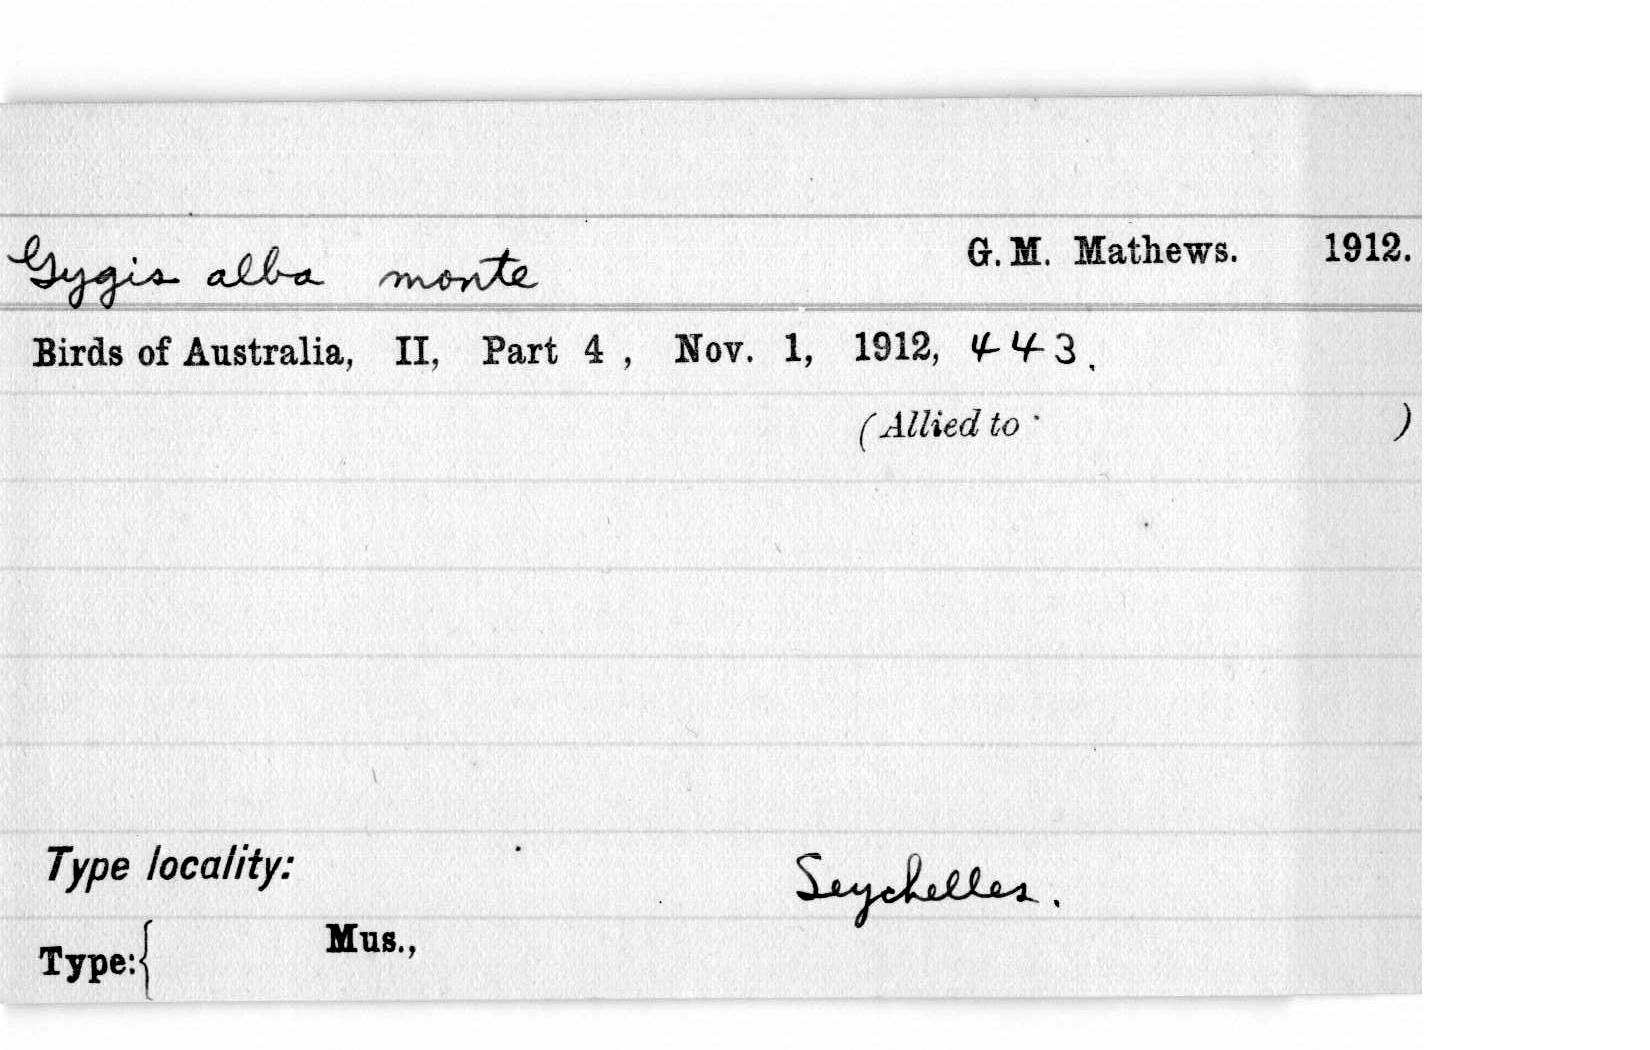 Gygis alba monte G. M. Mathews. 1912.
Birds of Australia, II, Part 4 , Nov. 1, 1912, 443.
(Allied to )
Type locality: Seychelles.
Type:{ Mus.,